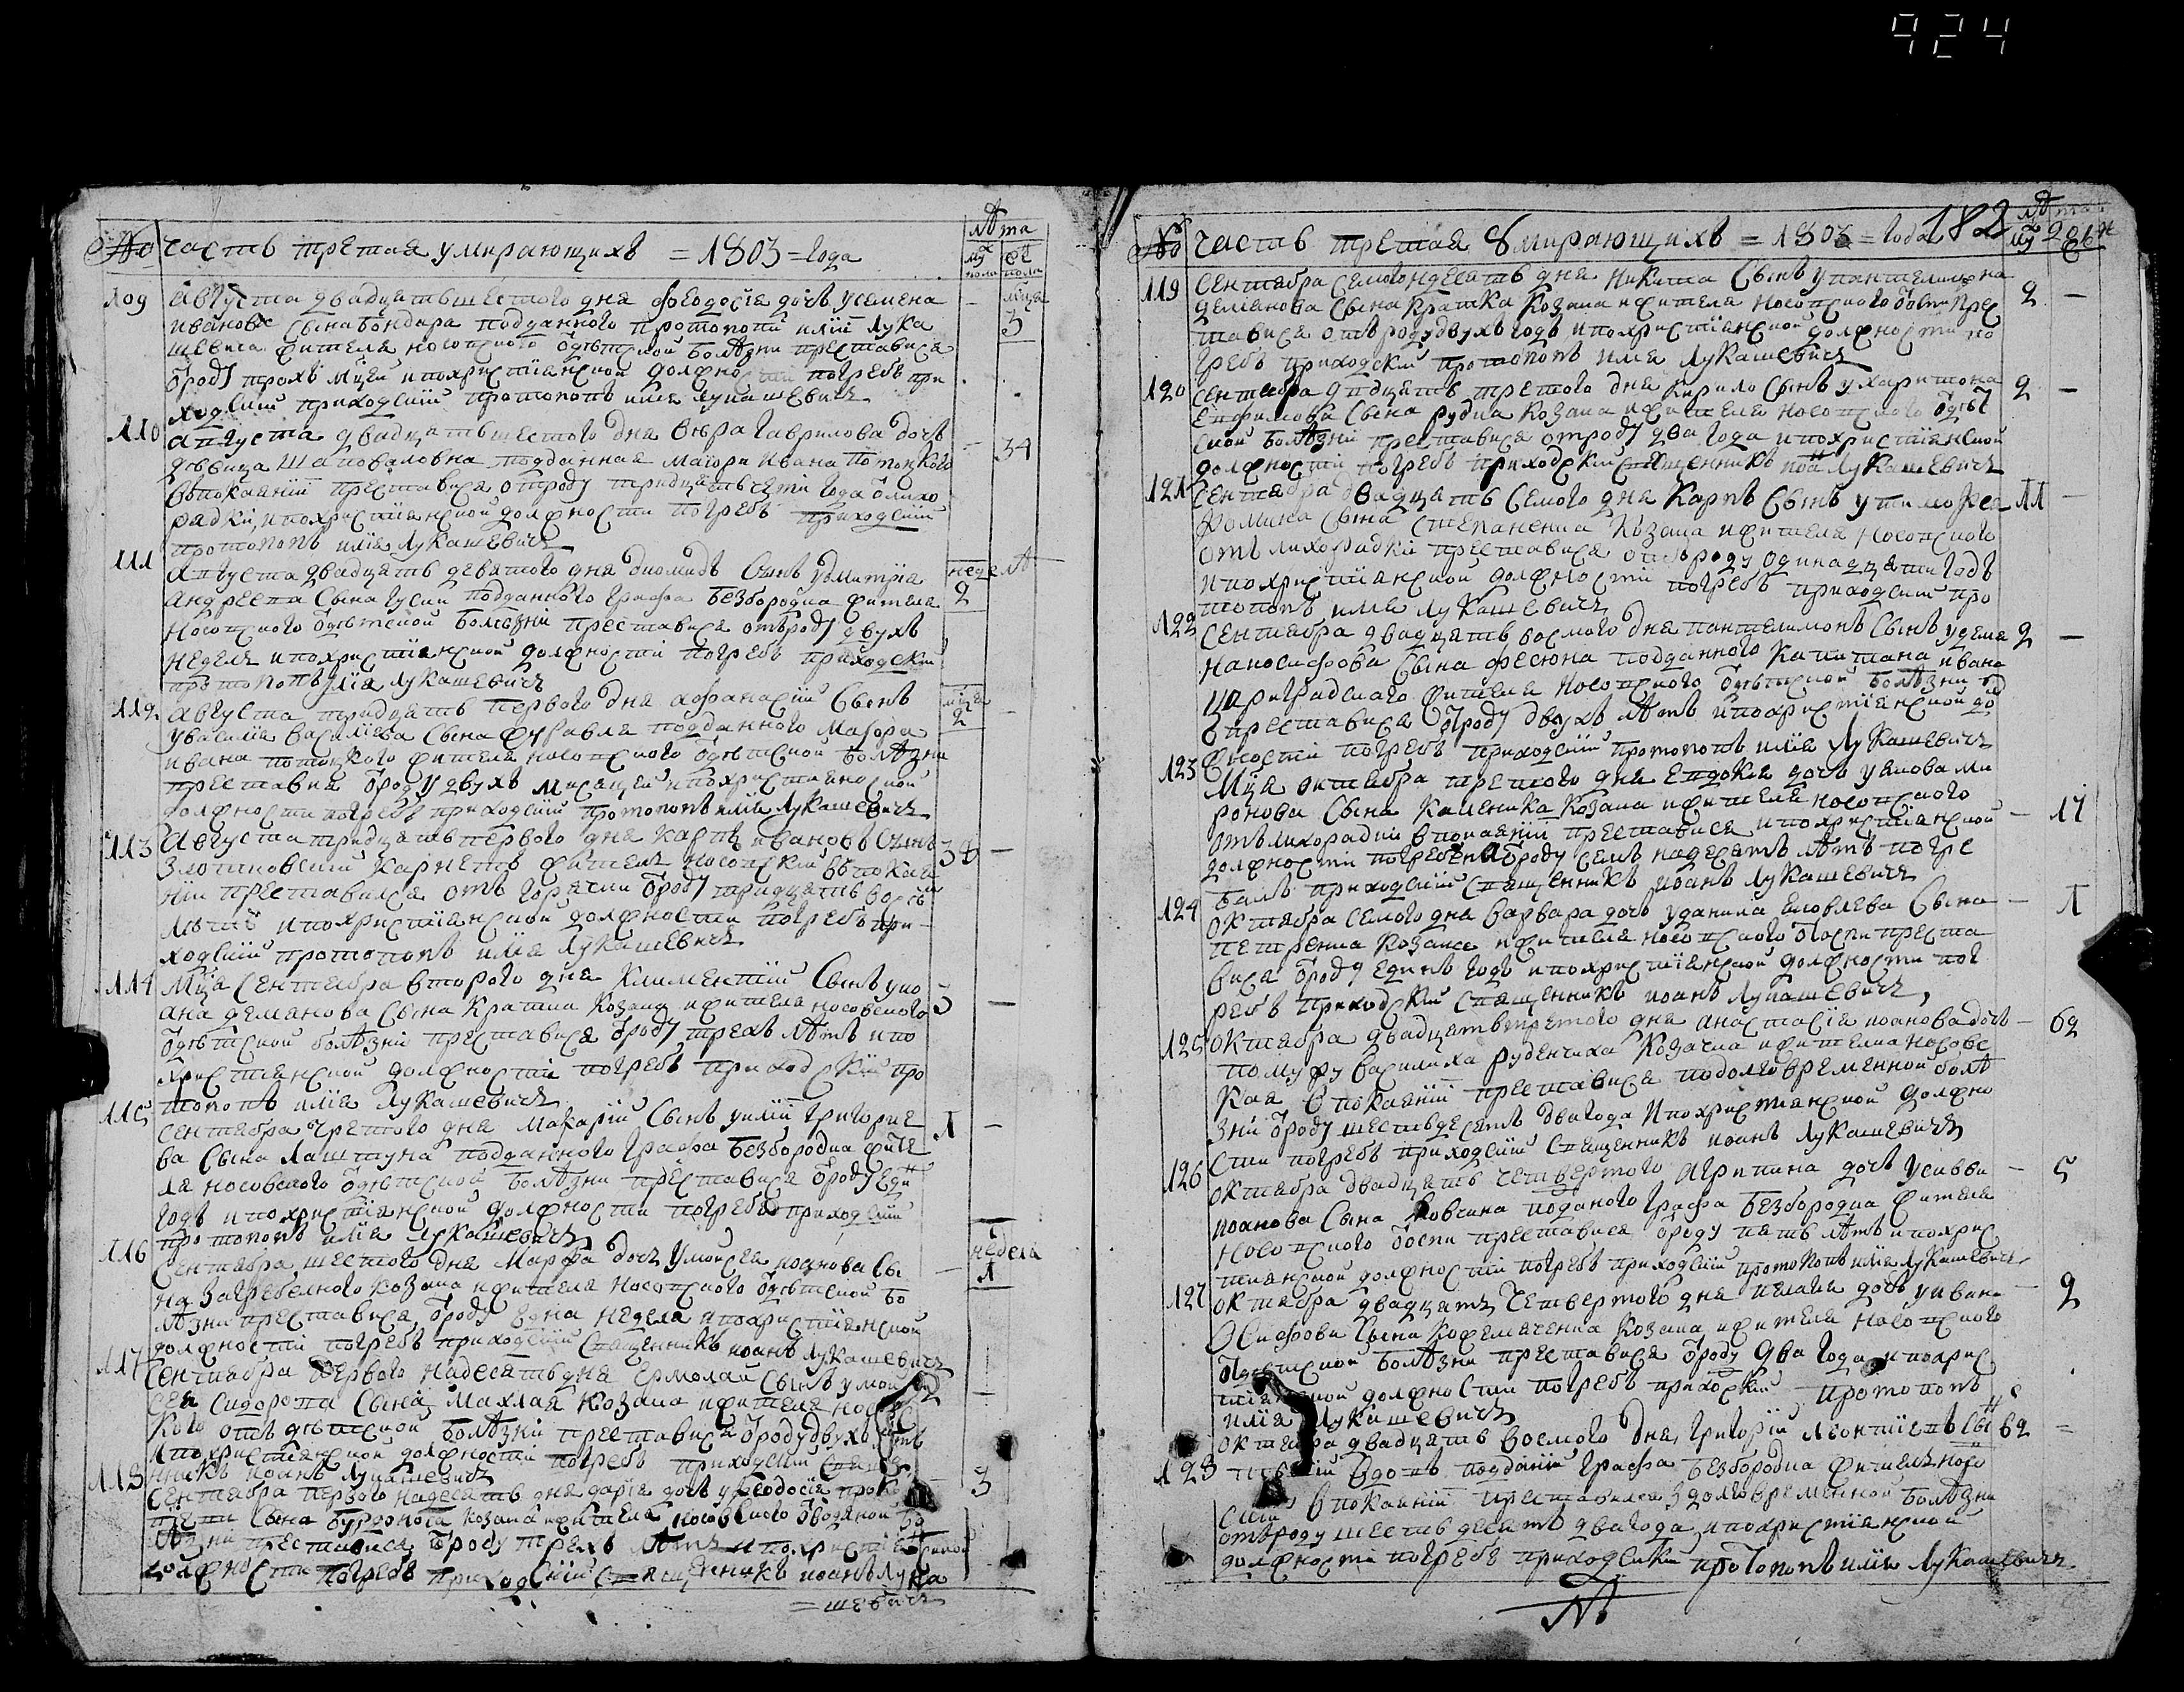 924
№ часть третая умирающихъ = 1803 = года
лѣта
му пола
же пола
109 августа двадцать шестого дня феодосіа дочь усемена
ивановa Сына бондара подданного протопопи иліи Лука
шевича жителя носовского ѿдѣтской болѣзни преставися
ѿроду трохъ мцей ипохристіянской должности погребъ при
ходскій приходскій протопопъ иліа лукашевичъ
мца 3
110 августа двадцать шестого дня вѣра гаврилова дочь
дѣвица Шаповаловна подданная маіори ивана потоцкого
впокаянїи преставися отроду тридцать чети года ѿлихо
радки, ипохристіянской должности погребъ приходскій
протопопъ иліа Лукашевичъ
34
111 августа двадцать девятого дня диомидъ Сынъ удмитріа
андреева Сына гусии подданного графа Безбородка жителя
носовского ѿдѣтской болѣзни преставися отъроду двухъ
недель ипохристіянской должности погребъ приходскій
протопопъ иліа Лукашевичъ
неделѣ 2
112 Августа тридцать первого дня афанасій Сынъ
увасиліа василіева Сына подданного маіора
ивана потоцкого жителя носовского ѿдѣтской болѣзни
преставися ѿроду двухъ мисяцей ипохристиянской
должности погребъ приходскій протопопъ иліа Лукашевичъ
мцей 2 –
113 Августа тридцать первого дня карпъ ивановъ Сынъ
Злотиковскій карнетъ житель носовскій впокая
ніи преставился отъ горячки ѿроду тридцать восемъ
лѣтъ ипохристіянской должности погребъ при
ходскій протопопъ иліа Лукашевичъ
38 –
114 Мца Сентября второго дня климентій Сынъ уио
ана демянова Сына кратка козака ижителя носовского
ѿдѣтской болѣзни преставися ѿроду трехъ лѣтъ ипо
християнской должности погребъ приходскій про
топопъ иліа Лукашевичъ
3 –
115 Сентября третого дня макарій Сынъ уиліи григорие
ва Сына Лаштуна подданного графа Безбородка жите
ля носовского ѿдѣтской болѣзни преставися ѿроду едн
годъ ипохристіянской должности погребъ приходскій
протопопъ иліа Лукашевичъ
1 –
116 Сентября шестого дня марфа дочь умойсея иоанова Сы
на Загребелного козака ижителя носовского ѿдѣтской бо
лѣзни преставися, ѿроду една неделя ипохристіянской
должности погребъ приходскій Священникъ иоанъ Лукашевичъ
– неделя 1
117 Сентября первого надесять дня Ермолай Сынъ умой
сея Сидорова Сына махлая козака ижителя носовс
кого отъ дѣтской болѣзни преставися ѿроду двухъ лѣтъ
ипохристіянской должности погребъ приходскій Свяще
нникъ иоанъ Лукашевичъ
2 –
118 Сентября первого надесять дня дарія дочь уфеодосія проко
пієва Сына козака ижителя носовского ѿводяной бо
лѣзни преставися ѿроду трехъ лѣтъ ипохристіянской
должности погребъ приходскій Священникъ иоанъ Лука
= шевичъ
– 3
№ часть третая умирающихъ = 1803 = года 182
лѣта
119 Сентября Семогонадесять дня никита Сынъ упантелимона
демянова Сына кратка козака ижителя носовского ѿоспи прес
тавися отъ роду двухъ годъ ипохристіянской должности по
гребъ приходскій протопопъ иліа Лукашевичъ
2 –
120 Сентября двадцать третого дня кирило Сынъ ухаритона
Сына рудка козака ижителя носовского ѿдѣт
ской болѣзни преставися отроду два года ипохристіянской
должности погребъ приходскій Священникъ иоанъ Лукашевичъ
2 –
121 Сентября двадцать Семого дня карпъ Сынъ утимофея
фомина Сына Степаненка козака ижителя носовского
отъ лихорадки преставися отъроду одинадцати годъ
ипохристіянской должности погребъ приходскій про
топопъ иліа Лукашевичъ
11 –
122 Сентября двадцать восмого дня пантелимонъ Сынъ удемя
на Сына фесюна подданного капитана ивана
цариградского жителя носовского ѿдѣтской болѣзни
преставися ѿроду двухъ лѣтъ ипохристіянской дол
жности погребъ приходскій протопопъ иліа Лукашевичъ
2 –
123 Мца октября третого дня Евдокіа дочь уякова ми
ронова Сына каленика козака ижителя носовского
отъ лихорадки впокаяніи преставися ипохристіянской
должности погребена ѿроду семъ надесятъ лѣтъ погре
балъ приходскій Священникъ иоанъ Лукашевичъ
– 17
124 октября Семого дня варвара дочь уданила яковлева Сына
петренка козака ижителя носовского ѿоспи преста
вися ѿроду единъ годъ ипохристіянской должности пог
ребъ приходскій Священникъ иоанъ Лукашевичъ,
– 1
125 октября двадцать третого дня анастасіа иоанова дочь
помужу василиха руденчиха козачка ижителка носовс
кая впокаяніи преставися подолговременной болѣ
зни ѿроду шестьдесятъ двагода ипохристиянской должно
сти погребъ приходскій Священникъ иоанъ Лукашевичъ
– 62
126 октября двадцать четвертого агрипина дочь усавви
иоанова Сына подданого графа безбородка жителя
носовского ѿоспи преставися ѿроду пять лѣтъ ипохрис
тианской должности погребъ приходскій протопопъ иліа Лукашевичъ
– 5
127 октября двадцать четвертого дня дочь уивана
осифова Сына кожемяченка козака ижителя носовского
ѿдѣтской болѣзни преставися ѿроду два года ипохрис
тіянской должности погребъ приходскій протопопъ
иліа Лукашевичъ
– 2
128 октября двадцать восмого дня, григорій леонтіевъ Сынъ
вдовъ подданій графа Безбородка житель носо
вскій впокаяніи преставился здолговременной болѣзни
отъроду шестьдесятъ двагода, ипохристіянской
должности погребъ приходскій протопопъ иліа Лукашевичъ
62 =